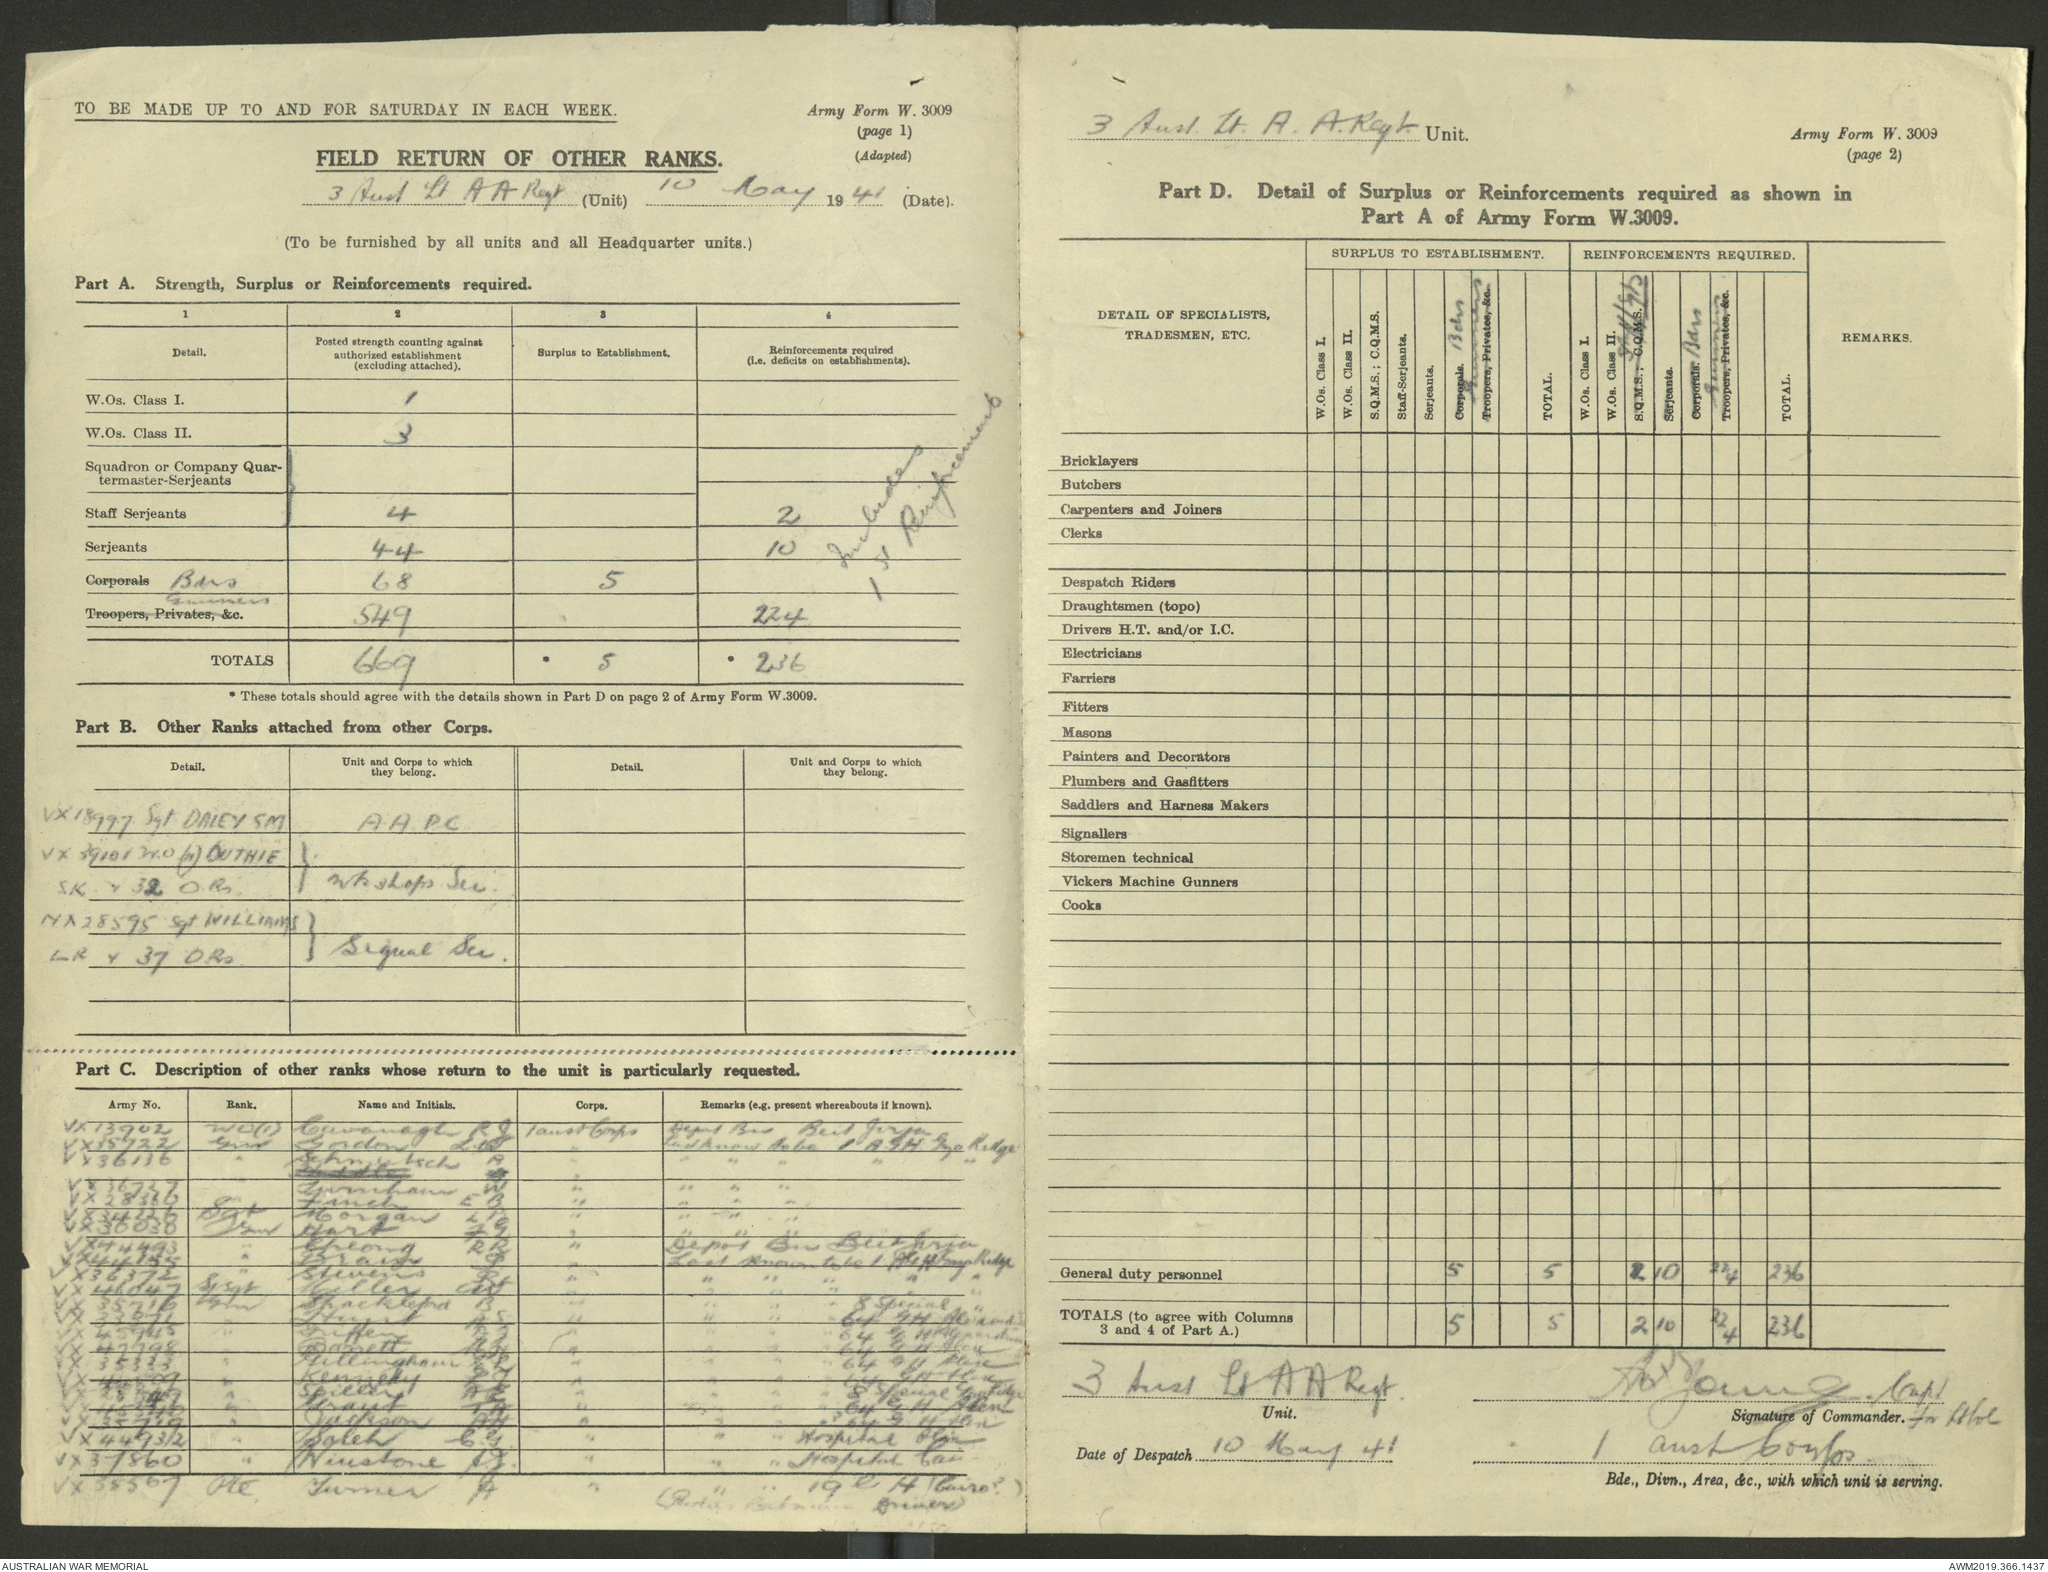 TO BE MADE UP TO AND FOR SATURDAY IN EACH WEEK.
Army Form W. 3009
(page 1)
(Adapted)
FIELD RETURN OF OTHER RANKS.
3 Aust Lt A A Regt (Unit) 10 May 1941 (Date).
(To be furnished by all units and all Headquarter units.)
Part A. Strength, Surplus or Reinforcements required.
1 2 3 4
Detail. Posted strength counting against authorized establishment (excluding attached). Surplus to Establishment. Reinforcements required (i.e. deficits on establishments).
W.Os. Class I. 1
W.Os. Class II. 3
Squadron or Company Quartermaster-Serjeants
Staff Serjeants 4 2
Serjeants 44 10
Corporals Bdrs 68 5
Gunners
Troopers, Privates, &c. 549 224
Includes 1st Reinforcements
TOTALS 669 * 5 * 236
* These totals should agree with the details shown in Part D on page 2 of Army Form W.3009.
Part B. Other Ranks attached from other Corps.
Detail. Unit and Corps to which they belong. Detail. Unit and Corps to which they belong.
VX18997 Sgt DALEY SM A A P C
WO (II) DUTHIE
SK + 32 ORs. Wkshops Sec.
NX28595 Sgt WILLIAMS
LR + 37 ORs Signal Sec.
Part C. Description of other ranks whose return to the unit is particularly requested.
Army No. Rank. Name and Initials. Corps. Remarks (e.g. present whereabouts if known).
VX13902 WO(1) Cavanagh R J 1 Aust Corps Depot Bn Beit Jirja
VX35722 Gnr Gordon Last Know to be 1 A.G.H. Gaza Ridge
VX36136 " A " " " " "
VX36727 " Turnham W " " " "
VX28366 Finch E B " " " "
Sgt Morgan " " " "
VX36038 Gnr Hart " " " "
VX44493 " Cheong R R " Depot Bn Beit Jirja
" Last Known to be 1 AGH Gaza Ridge
VX36372 " Stevens
VX46047 S/Sgt Miller
VX35716 Gnr Shackleford B 8 Special
" Hurst 64 G H Alexandria
VX45945 " 64 G H Alexandria
VX47798 " Barrett 64 G H Alex
VX35333 " Hillingham 64 G H Alex
" Kennedy 64 GH Alex
" Spiller 8 Special Gaza Ridge
" Grant 64 G H Alex
" Jackson 64 G H Alex
" Saleh Hospital Alex
VX37860 " Hospital
Pte Turner A " " " 19 G H (Cairo?)
3 Aust. Lt. A. A. Regt. Unit.
Army Form W. 3009
(page 2)
Part D. Detail of Surplus or Reinforcements required as shown in
Part A of Army Form W.3009.
DETAIL OF SPECIALISTS, TRADESMEN, ETC.
SURPLUS TO ESTABLISHMENT. REINFORCEMENTS REQUIRED. REMARKS.
W.Os. Class I. W.Os. Class II. S.Q.M.S.; C.Q.M.S. Staff-Serjeants. Serjeants. Corporals. Bdrs Troopers, Privates, &c. Gunners TOTAL.
W.Os. Class I. W.Os. Class II. S.Q.M.S.; C.Q.M.S. Serjeants. Corporals. Bdrs Troopers, Privates, &c. Gunners TOTAL.
Bricklayers
Butchers
Carpenters and Joiners
Clerks
Despatch Riders
Draughtsmen (topo)
Drivers H.T. and/or I.C.
Electricians
Farriers
Fitters
Masons
Painters and Decorators
Plumbers and Gasfitters
Saddlers and Harness Makers
Signallers
Storemen technical
Vickers Machine Gunners
Cooks
General duty personnel 5 5 2 10 224 236
TOTALS (to agree with Columns 3 and 4 of Part A.) 5 5 2 10 224 236
3 Aust Lt A A Regt.
Unit.
Capt
Signature of Commander. for Lt Col
Date of Despatch 10 May 41
1 Aust Corps.
Bde., Divn., Area, &c., with which unit is serving.
AUSTRALIAN WAR MEMORIAL
AWM2019.366.1437